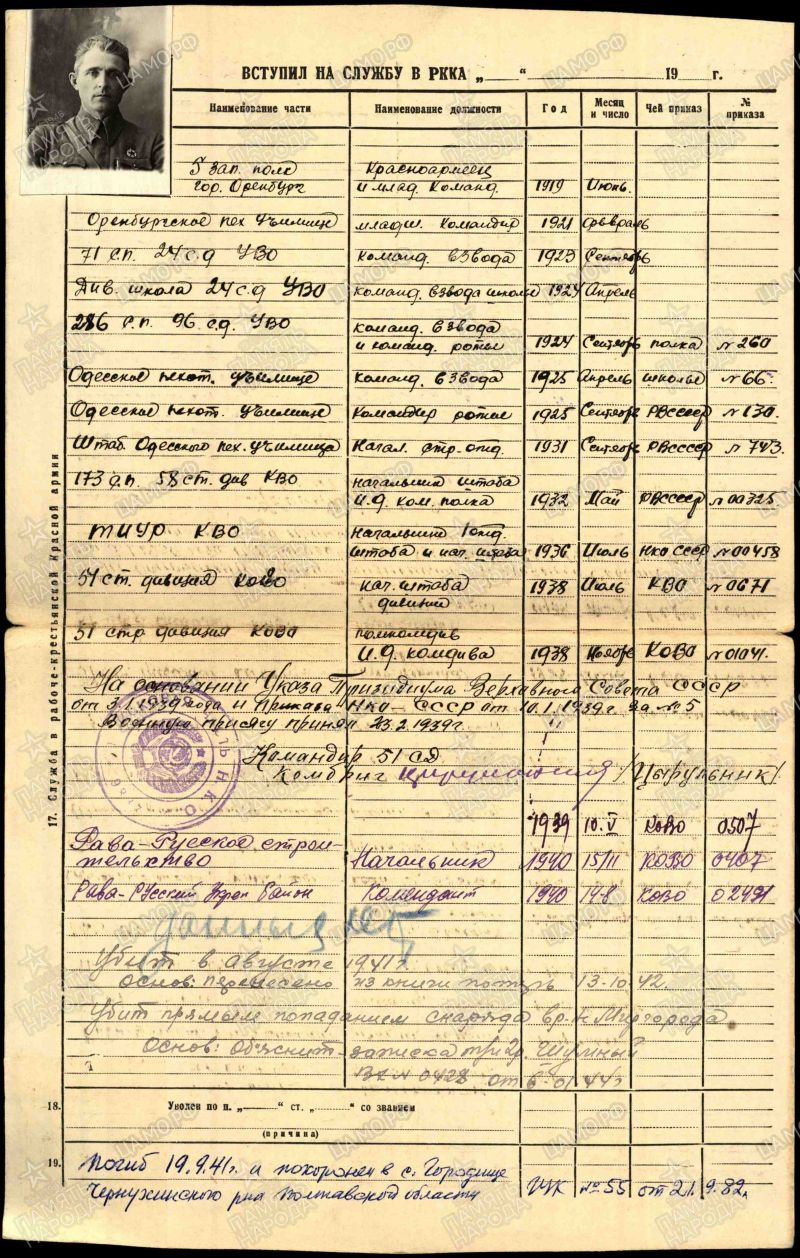 ВСТУПИЛ НА СЛУЖБУ В РККА „ “ 19 г.
Наименование части Наименование должности Год Месяц и число Чей приказ № приказа
5 зап. полк Красноармеец
гор. Оренбург и млад. команд. 1919 Июнь.
Оренбургское пех. училище младш. командир 1921 февраль
71 с.п. 24 с.д УВО команд. взвода 1923 Сентябрь
Див. школа 24 с.д УВО команд. взвода школы 1924 Апрель
286 с.п. 96 с.д. УВО команд. взвода
и команд. роты 1924 Сентябрь полка № 260
Одесское пехот. училище команд. взвода 1925 Апрель школы № 66.
Одесское пехот. училище командир роты 1925 Сентябрь РВСССР № 130.
Штаб. Одесского пех. училища Начал. стр. отд. 1931 Сентябрь РВСССР № 743.
173 с.п. 58 ст. див КВО начальник штаба
И.д. ком. полка 1932 Май РВСССР № 00325
ТИУР КВО начальник 1 отд.
штаба и нач. штаба 1936 Июль НКО СССР № 00458
51 ст. дивизия КОВО нач. штаба
дивизии 1938 Июль КВО № 0671
51 стр дивизия КОВО помкомдив
И.д. комдива 1938 Ноябрь КОВО № 01041.
На основании Указа Призидиума Верховного Совета СССР
от 3.1.1939 года и Приказа НКО-СССР от 10.1.1939г. за № 5
Военную присягу принял 23.2.1939г.
Командир 51 СД
Комбриг /Цырульник/
НКО
1939 10.V КОВО 0507
Рава-Русское строи-
тельство Начальник 1940 15/II КОВО 0407
Рава-Русский Укреп Район Комендант 1940 14.8 КОВО 02491
Убит в августе 1941г.
Основ: перенесено из книги потерь 13-10-42.
Убит прямым попаданием снаряда в р-н Миргорода
Основ: Объяснит-записка
Вх № 0428 от 6.01.44г
17. Служба в рабоче-крестьянской Красной армии
18. Уволен по п. „ “ ст. „ “ со званием
(причина)
19. Погиб 19.9.41г. и похоронен в с. Городище
Чернухинского р-на Полтавской области ГУК № 55 от 21.9.82г.
ЦАМО.РФ
ПАМЯТЬ НАРОДА